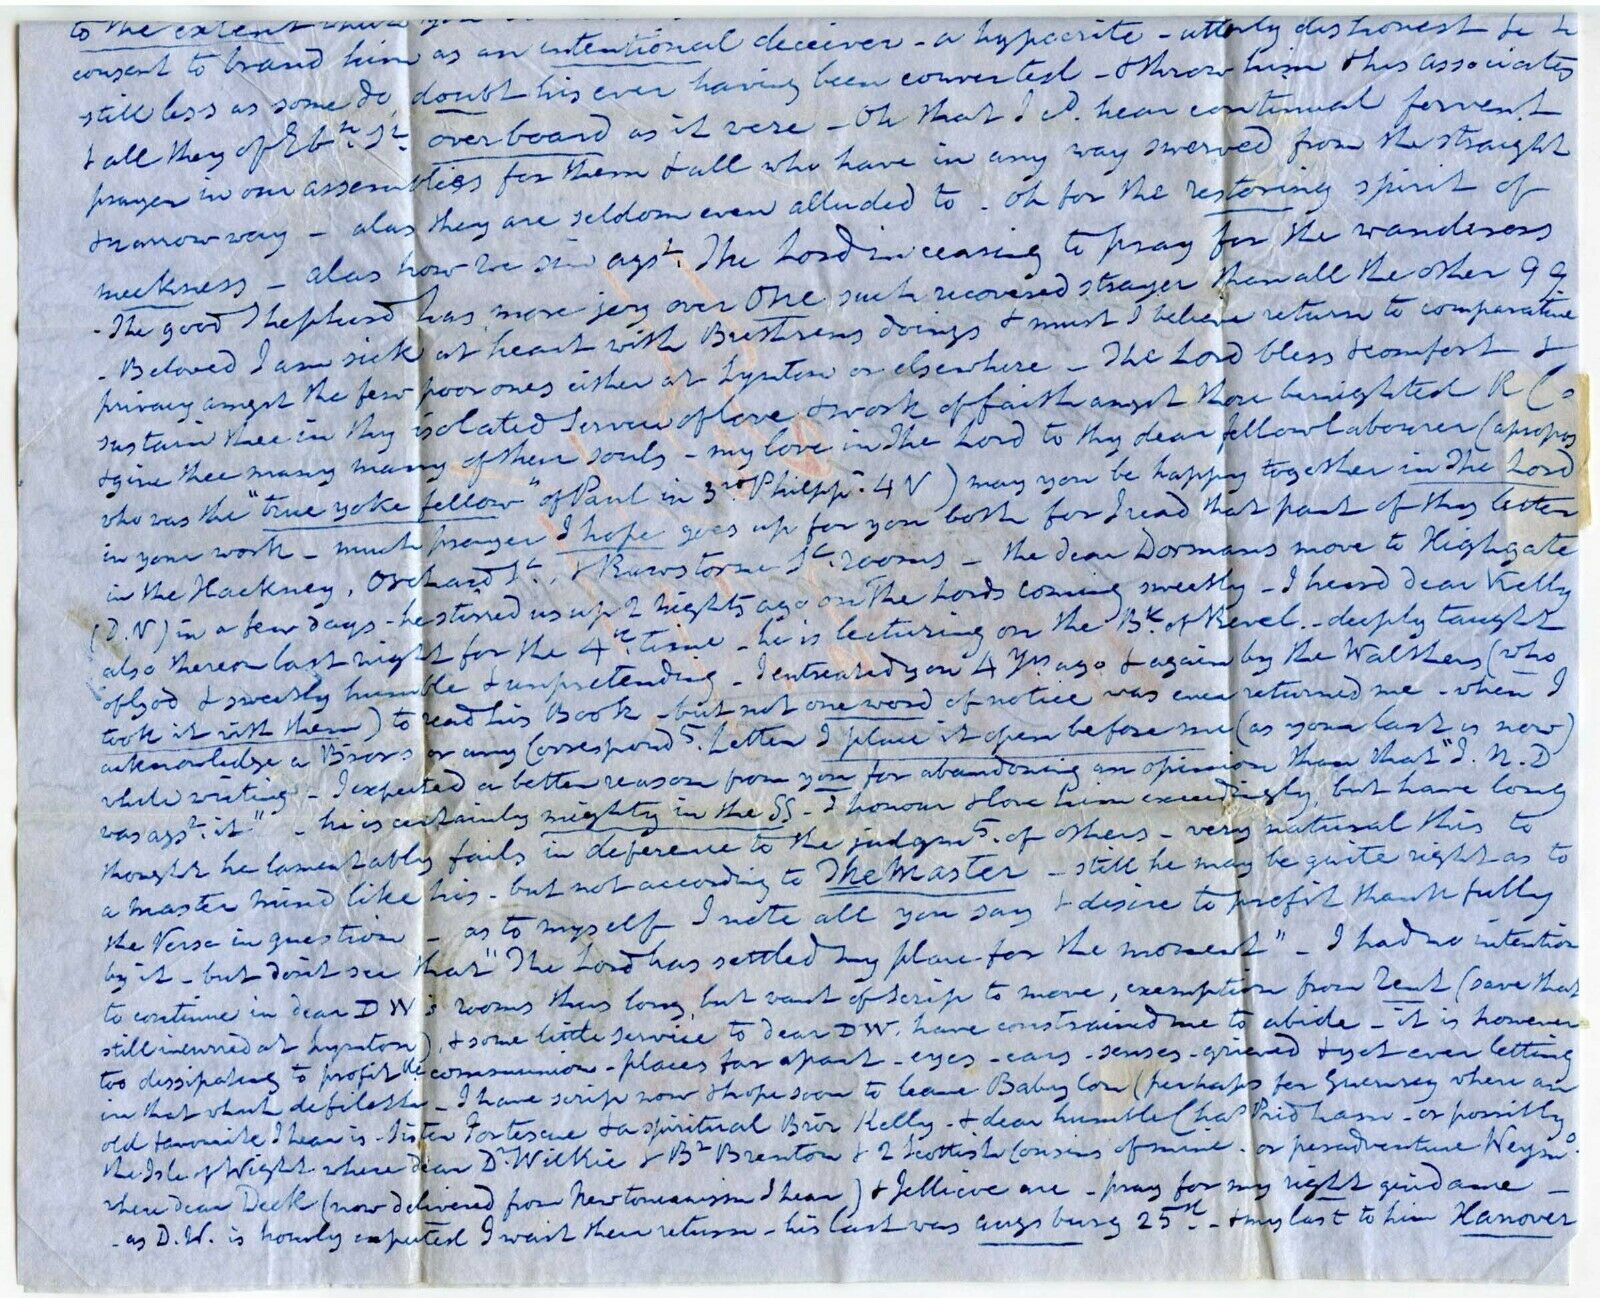 to the extent
consent to brand him as an intentional deceiver - a hypocrite - utterly dishonest &c &c
still less as some do, doubt his ever having been converted - & throw him & his associates
& all they of Ebr. St. overboard as it were - Oh that I cd. hear continual fervent
prayer in our assemblies for them & all who have in any way swerved from the straight
& narrow way - alas they are seldom even alluded to - Oh for the restoring spirit of
meekness - alas how we sin agst. The Lord in ceasing to pray for the wanderers
- The good Shepherd has more joy over One such recovered strayer than all the other 99.
- Beloved I am sick at heart with Brethrens doings & must I believe return to comparative
privacy amgst the few poor ones either at Lynton or elsewhere - The Lord bless & comfort &
sustain thee in thy isolated service of love & work of faith amgst those benighted R Cs
& give thee many many of their souls - my love in The Lord to thy dear fellow labourer (apropos
who was the "true yoke fellow" of Paul in 3rd Philipp. 4 V) may you be happy together in The Lord
in your work - much prayer I hope goes up for you both for I read that part of thy letter
in the Hackney, Orchard St., & Rawstorne St. rooms - the dear Dormans move to Highgate
(D.V) in a few days - he stirred us up 2 nights ago on The Lords coming sweetly - I heard dear Kelly
also thereon last night for the 4th time - he is lecturing on the Bk. of Revel. - deeply taught
of God & sweetly humble & unpretending - I entreated you 4 yrs ago & again by the Walthers (who
took it with them) to read his Book - but not one word of notice was ever returned me - when I
acknowledge a Bror's or any Correspondts. Letter I place it open before me (as your last is now)
while writing - I expected a better reason from you for abandoning an opinion than that "J. N. D
was agst. it" - he is certainly mighty in the SS - I honour & love him exceedingly, but have long
thought he lamentably fails in deference to the judgmts. of others - very natural this to
a master mind like his - but not according to The Master - still he may be quite right as to
the Verse in question - as to myself I note all you say & desire to profit thankfully
by it - but don't see that "The Lord has settled my place for the moment" - I had no intention
to continue in dear D W's rooms thus long, but want of scrip to move, exemption from rent (save that
still incurred at Lynton), & some little service to dear DW. have constrained me to abide - it is however
too dissipating to profitble communion - places far apart - eyes - ears - senses - grieved & yet ever letting
in that which defileth - I have scrip now & hope soon to leave Babylon (perhaps for Guernsey where an
old favourite I hear is - Sister Fortescue & a spiritual Bror Kelly - & dear humble Chas Pridham - or possibly
the Isle of Wight where dear Dr. Wilkie & Br Brenton & 2 Scottish Cousins of mine - or peradventure Weymo
where dear Deck (now delivered from Newtonianism I hear) & Jellicoe are - pray for my right guidance -
- as D.W. is hourly expected I wait their return - his last was Augsburg 25th - & my last to him Hanover